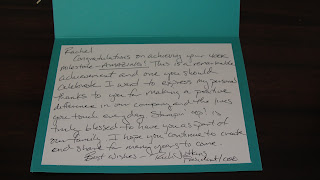 Rachel
Congratulations on achieving your
milestone - AMAZING! This is a remarkable
achievement and one you should
celebrate. I want to express my personal
thanks to you for making a positive
difference in our company and the lives
you touch everyday. Stampin' Up! is
truly blessed to have you as part of
our family. I hope you continue to create
and share for many years to come.
Best Wishes -
President/CEO